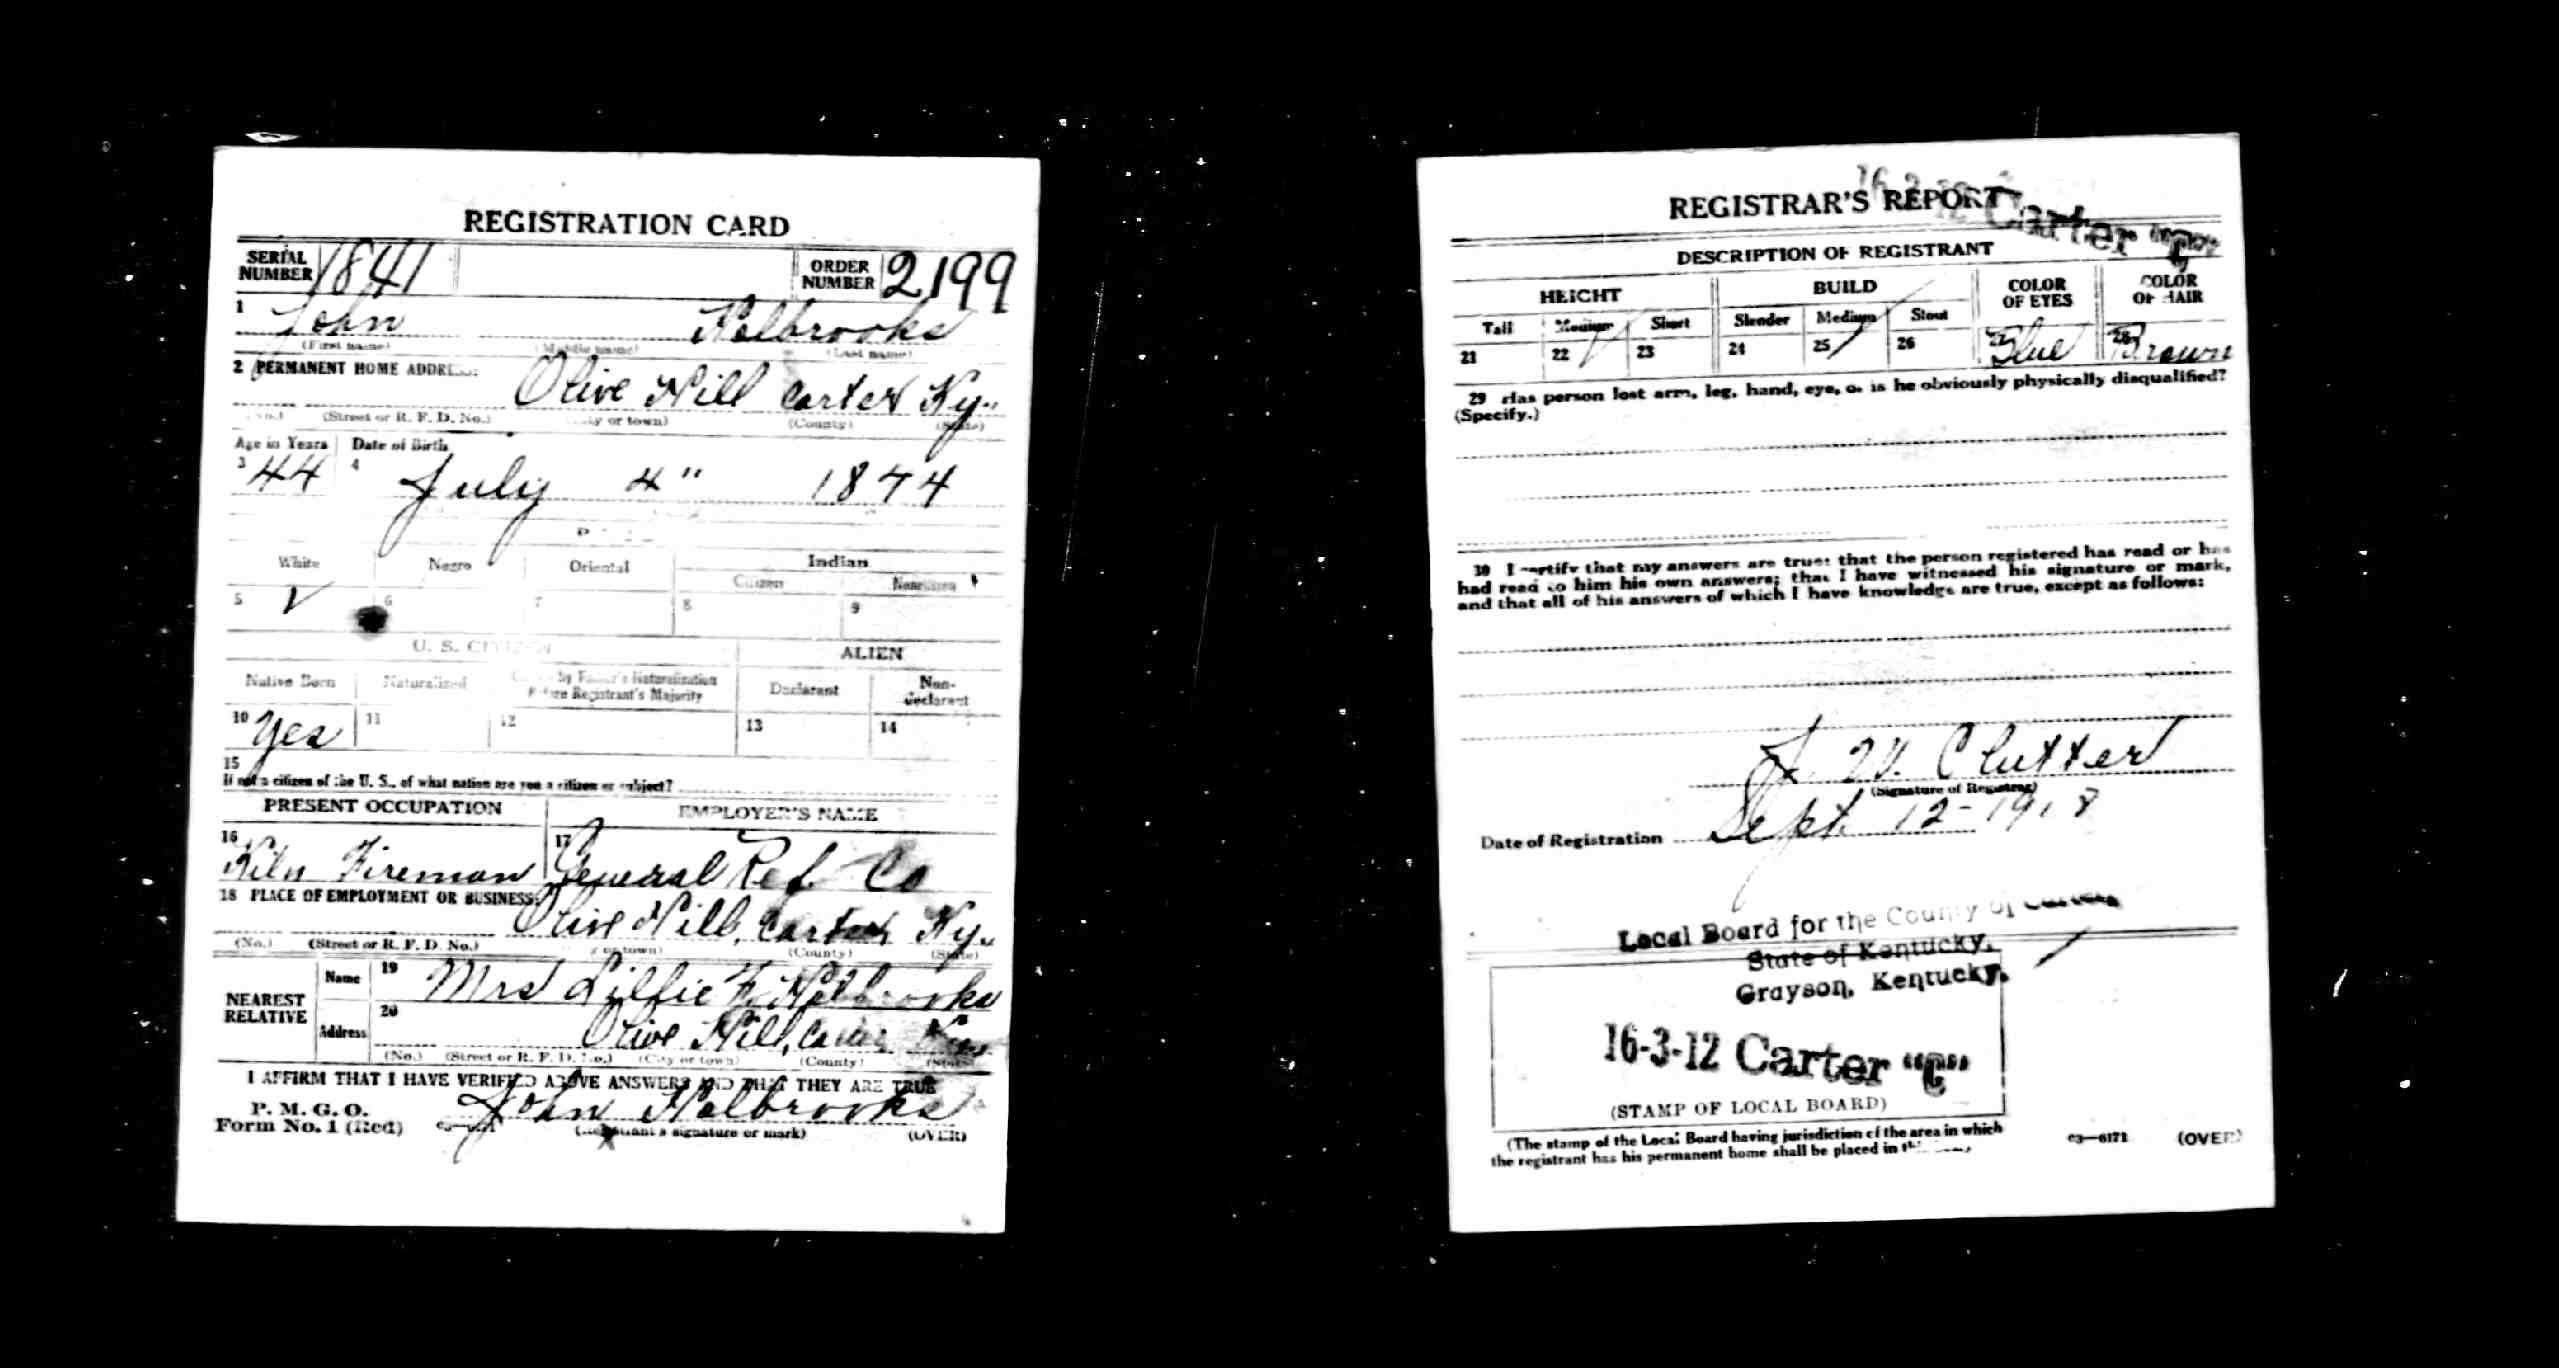 REGISTRATION CARD
SERIAL NUMBER 1841 ORDER NUMBER 2199
1 John Holbrooks
(First name) (Middle name) (Last name)
2 PERMANENT HOME ADDRESS:
Olive Hill Carter Ky.
(No.) (Street or R. F. D. No.) (City or town) (County) (State)
Age in Years Date of Birth
3 44 4 July 4" 1874
White Negro Oriental Indian
Citizen Noncitizen
5 √ 6 7 8 9
U. S. CITIZEN ALIEN
Native Born Naturalized Citizen by Father's Naturalization Before Registrant's Majority Declarant Non-declarant
10 yes 11 12 13 14
15
If not a citizen of the U. S., of what nation are you a citizen or subject?
PRESENT OCCUPATION EMPLOYER'S NAME
16 Kiln Fireman 17 General Ref. Co
18 PLACE OF EMPLOYMENT OR BUSINESS:
Olive Hill, Carter Ky.
(No.) (Street or R. F. D. No.) (City or town) (County) (State)
NEAREST RELATIVE
Name 19 Mrs Lillie Holbrooks
Address 20 Olive Hill, Carter Ky.
(No.) (Street or R. F. D. No.) (City or town) (County) (State)
I AFFIRM THAT I HAVE VERIFIED ABOVE ANSWERS AND THAT THEY ARE TRUE
P. M. G. O.
Form No. 1 (Red) John Holbrooks
(Registrant's signature or mark) (OVER)
REGISTRAR'S REPORT
16-3-12 Carter "C"
DESCRIPTION OF REGISTRANT
HEIGHT BUILD COLOR OF EYES COLOR OF HAIR
Tall Medium Short Slender Medium Stout
21 22 / 23 24 25 / 26 27 Blue 28 Brown
29 Has person lost arm, leg, hand, eye, or is he obviously physically disqualified?
(Specify.)
30 I certify that my answers are true; that the person registered has read or has
had read to him his own answers; that I have witnessed his signature or mark,
and that all of his answers of which I have knowledge are true, except as follows:
J. W. Clutter
(Signature of Registrar)
Date of Registration Sept. 12-1918
Local Board for the County of Carter,
State of Kentucky,
Grayson, Kentucky.
16-3-12 Carter "C"
(STAMP OF LOCAL BOARD)
(The stamp of the Local Board having jurisdiction of the area in which
the registrant has his permanent home shall be placed in this
03—6171 (OVER)